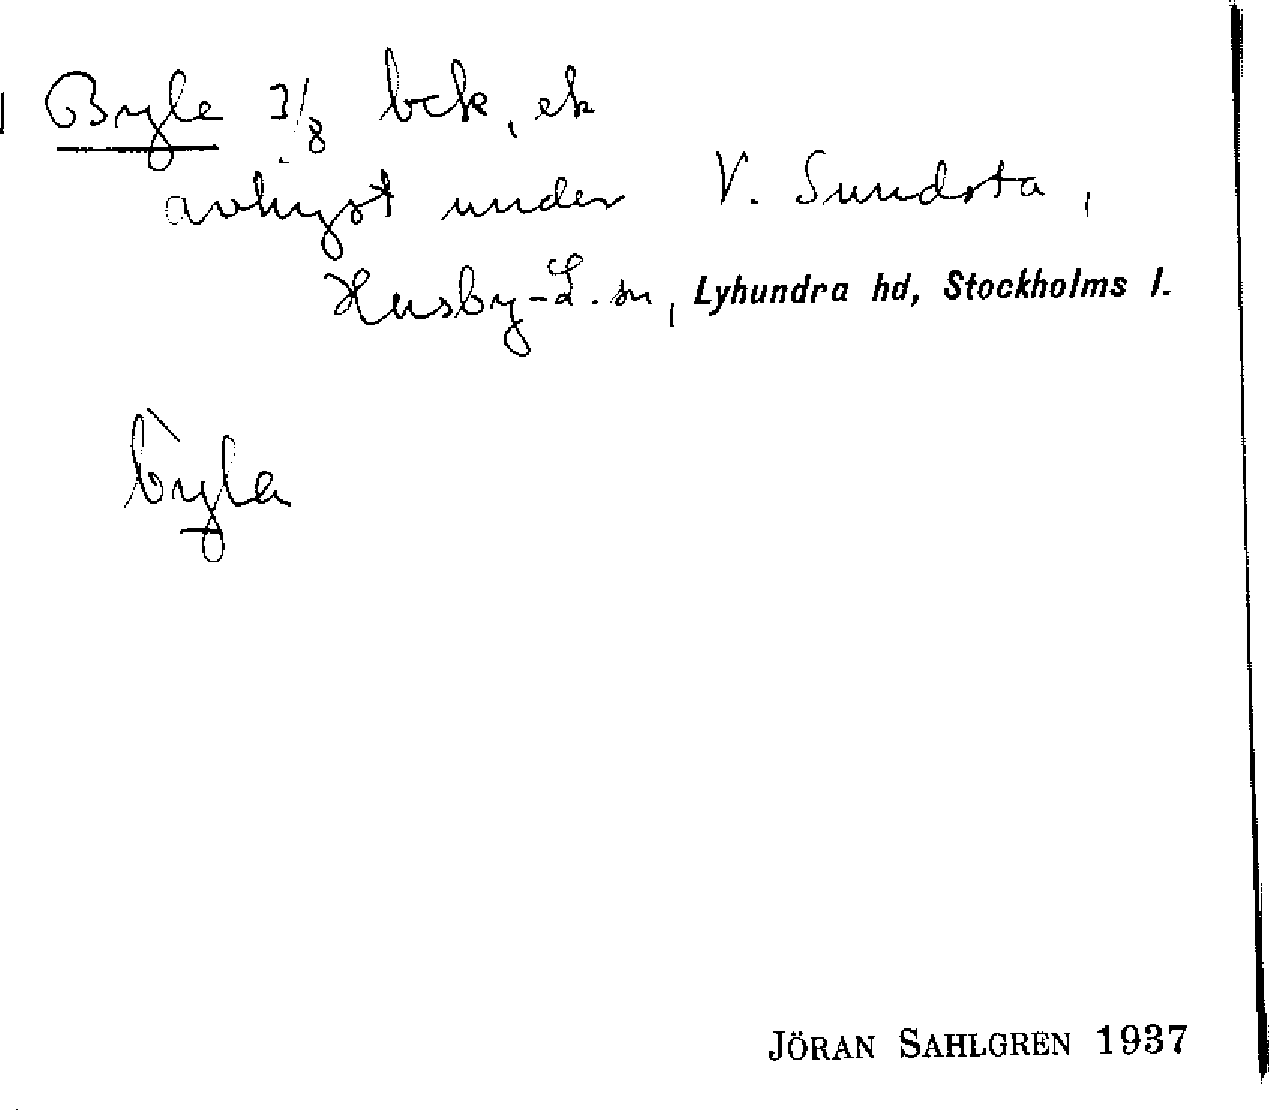 Byle 3/8 bck, ek
avhyst under V. Sundsta,
Husby-L. sn, Lyhundra hd, Stockholms l.
b̀yla
JÖRAN SAHLGREN 1937